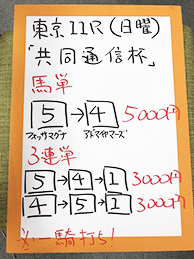 東京11R(日曜)
「共同通信杯」
馬単
5→4 5000円
フォッサマグナ アドマイヤマーズ
3連単
5→4→1 3000円
4→5→1 3000円
一騎打ち!